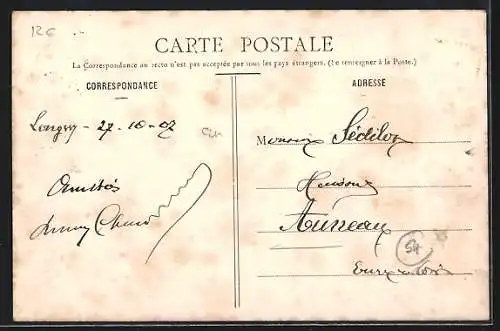 12C
CARTE POSTALE
La Correspondance au recto n'est pas acceptée par tous les pays étrangers. (Se renseigner à la Poste.)
CORRESPONDANCE
ADRESSE
Longny - 27-10-07
Monsieur Sédilot
Amitiés
Auneau
54
Eure et Loir